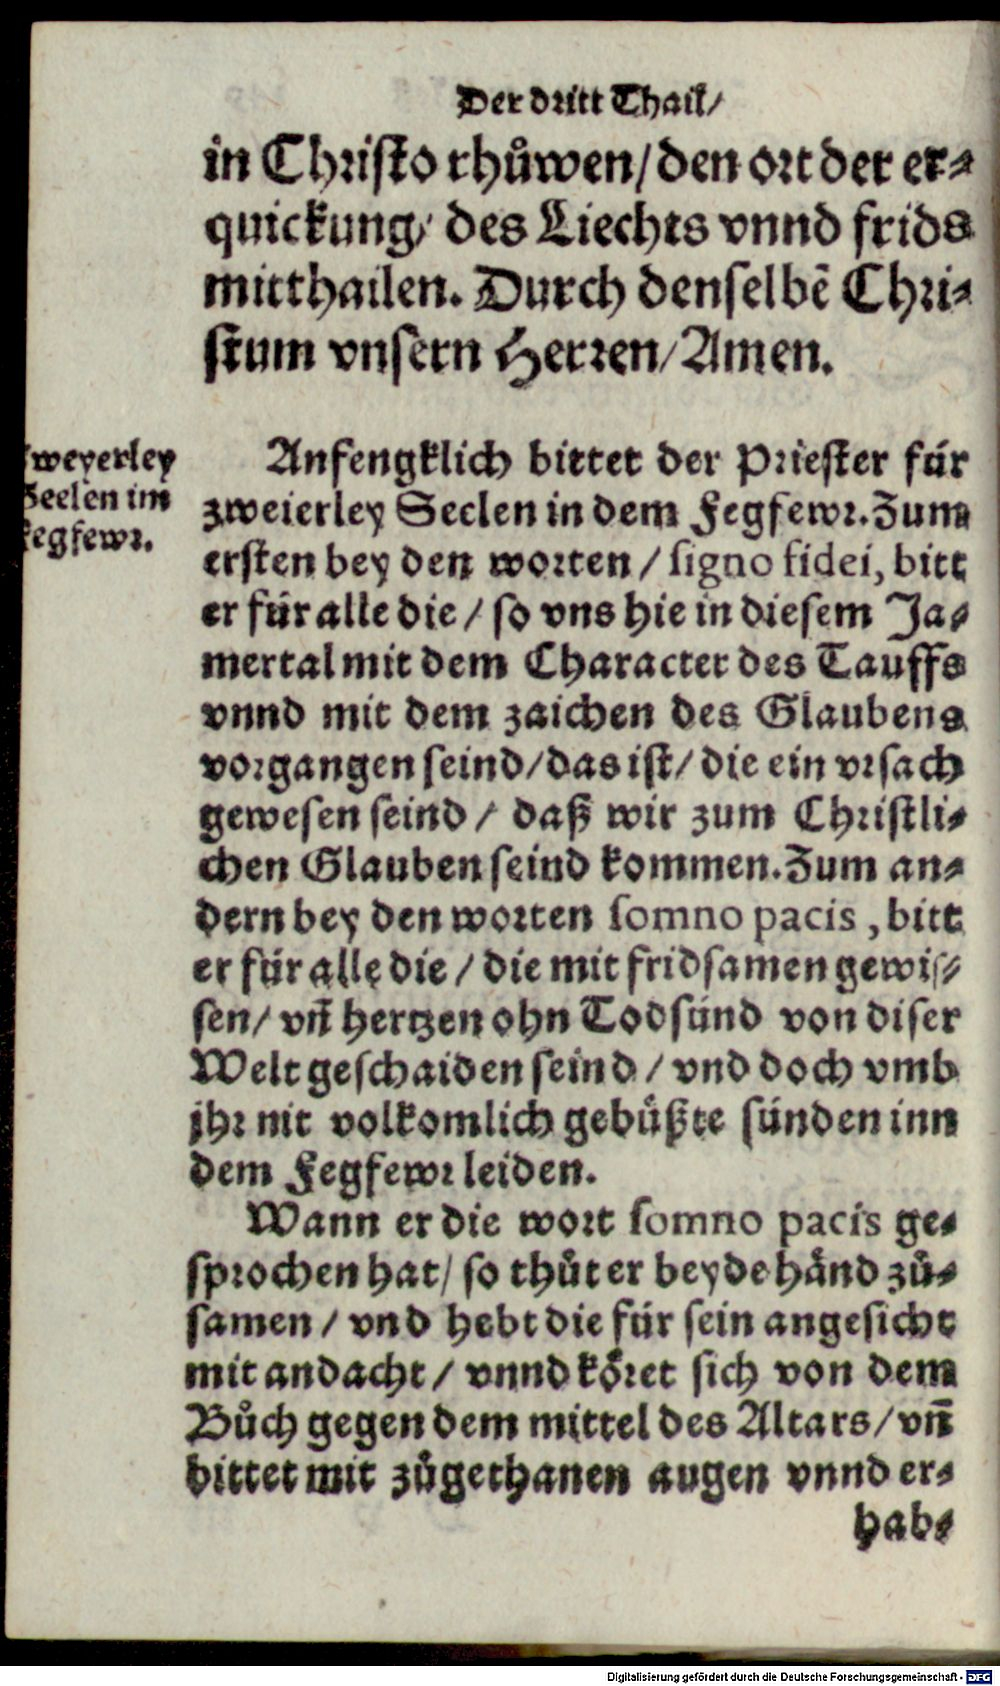 Der dritt Thail/
in Christo rhůwen/ den ort der er-
quickung/ des Liechts vnnd frids
mitthailen. Durch denselbẽ Chri-
stum vnsern Herren/ Amen.
zweyerley
Seelen im
Fegfewr.
Anfengklich bittet der Priester für
zweierley Seelen in dem Fegfewr. Zum
ersten bey den worten / signo fidei, bitt
er für alle die / so vns hie in diesem Ja-
mertal mit dem Character des Tauffs
vnnd mit dem zaichen des Glaubens
vorgangen seind/ das ist/ die ein vrsach
gewesen seind / daß wir zum Christli-
chen Glauben seind kommen. Zum an-
dern bey den worten somno pacis, bitt
er für alle die / die mit fridsamen gewis-
sen/ vñ hertzen ohn Todsünd von diser
Welt geschaiden seind / vnd doch vmb
jhr nit volkomlich gebüßte sünden inn
dem Fegfewr leiden.
Wann er die wort somno pacis ge-
sprochen hat/ so thůt er beyde händ zů-
samen / vnd hebt die für sein angesicht
mit andacht / vnnd köret sich von dem
Bůch gegen dem mittel des Altars/ vñ
bittet mit zůgethanen augen vnnd er-
hab-
Digitalisierung gefördert durch die Deutsche Forschungsgemeinschaft - DFG